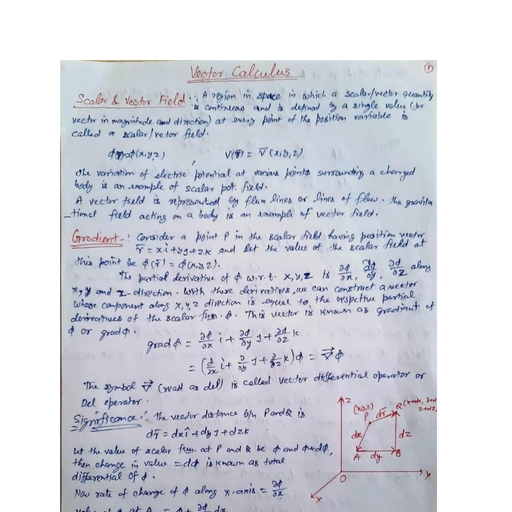 Vector Calculus
1
Scalar & Vector Field :- A region in space in which a scalar/vector quantity
is continuous and is defined by a single value (or
vector in magnitude and direction) at every point of the position variable is
called a scalar/vector field.
ϕ(x,y,z) , V(r̄) = V̄(x,y,z)
The variation of electric potential at various points surrounding a charged
body is an example of scalar pot. field.
A vector field is represented by flux lines or lines of flow. the gravita
-tional field acting on a body is an example of vector field.
Gradient :- Consider a point P in the scalar field having position vector
r̄ = xi+yj+zk and let the value of the scalar field at
this point be ϕ(r̄) = ϕ(x,y,z).
The partial derivative of ϕ w.r.t. x,y,z is ∂ϕ/∂x, ∂ϕ/∂y, ∂ϕ/∂z along
x, y and z-direction. With these derivatives, we can construct a vector
whose component along x,y,z direction is equal to the respective partial
derivatives of the scalar fun. ϕ. This vector is known as gradient of
ϕ or gradϕ.
grad ϕ = ∂ϕ/∂x i + ∂ϕ/∂y j + ∂ϕ/∂z k
= (∂/∂x i + ∂/∂y j + ∂/∂z k) ϕ = ∇⃗ϕ
The symbol ∇⃗ (read as del) is called vector differential operator or
Del operator.
Significance :- The vector distance b/n P and Q is
dr̄ = dxi + dyj + dzk
Let the value of scalar fun. at P and Q be ϕ and ϕ+dϕ,
then change in value = dϕ is known as total
differential of ϕ.
Now rate of change of ϕ along x-axis = ∂ϕ/∂x
Value of ϕ at A = ϕ + ∂ϕ/∂x dx
z
(x,y,z)
P
dr̄
Q
dx
dz
A
dy
B
O
y
x